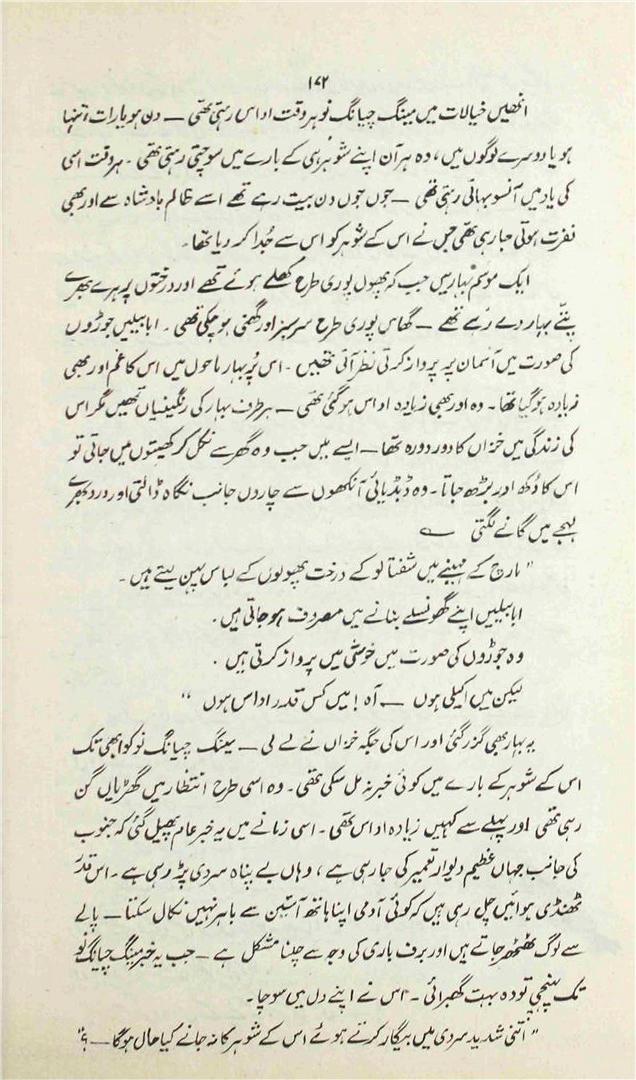 ۱۷۲
انھیں خیالات میں مینگ چیانگ نو ہر وقت اداس رہتی تھی — دن ہو یا رات، تنہا
ہو یا دوسرے لوگوں میں، وہ ہر آن اپنے شوہر ہی کے بارے میں سوچتی رہتی تھی۔ ہر وقت اسی
کی یاد میں آنسو بہاتی رہتی تھی — جوں جوں دن بیت رہے تھے اسے ظالم بادشاہ سے اور بھی
نفرت ہوتی جا رہی تھی جس نے اس کے شوہر کو اس سے جُدا کر دیا تھا۔
ایک موسمِ بہار میں جب کہ پھول پوری طرح کھلے ہوئے تھے اور درختوں پر ہرے بھرے
پتّے بہار دے رہے تھے — گھاس پوری طرح سرسبز اور گھنی ہو چکی تھی۔ ابابیلیں جوڑوں
کی صورت میں آسمان پر پرواز کرتی نظر آتی تھیں۔ اس پُر بہار ماحول میں اس کا غم اور بھی
زیادہ ہو گیا تھا۔ وہ اور بھی زیادہ اداس ہو گئی تھی — ہر طرف بہار کی رنگینیاں تھیں مگر اس
کی زندگی میں خزاں کا دور دورہ تھا — ایسے میں جب وہ گھر سے نکل کر کھیتوں میں جاتی تو
اس کا دُکھ اور بڑھ جاتا۔ وہ ڈبڈبائی آنکھوں سے چاروں جانب نگاہ ڈالتی اور درد بھرے
لہجے میں گانے لگتی ؎
" مارچ کے مہینے میں شفتالو کے درخت پھولوں کے لباس پہن لیتے ہیں۔
ابابیلیں اپنے گھونسلے بنانے میں مصروف ہو جاتی ہیں۔
وہ جوڑوں کی صورت میں خوشی میں پرواز کرتی ہیں۔
لیکن میں اکیلی ہوں — آہ! میں کس قدر اداس ہوں "
یہ بہار بھی گزر گئی اور اس کی جگہ خزاں نے لے لی — مینگ چیانگ نو کو ابھی تک
اس کے شوہر کے بارے میں کوئی خبر نہ مل سکی تھی۔ وہ اسی طرح انتظار میں گھڑیاں گن
رہی تھی اور پہلے سے کہیں زیادہ اداس تھی۔ اسی زمانے میں یہ خبر عام پھیل گئی کہ جنوب
کی جانب جہاں عظیم دیوار تعمیر کی جا رہی ہے، وہاں بے پناہ سردی پڑ رہی ہے۔ اس قدر
ٹھنڈی ہوائیں چل رہی ہیں کہ کوئی آدمی اپنا ہاتھ آستین سے باہر نہیں نکال سکتا — پالے
سے لوگ ٹھٹھر جاتے ہیں اور برف باری کی وجہ سے چلنا مشکل ہے — جب یہ خبر مینگ چیانگ نو
تک پہنچی تو وہ بہت گھبرائی۔ اس نے اپنے دل میں سوچا۔
" اتنی شدید سردی میں بیگار کرتے ہوئے اس کے شوہر کا نہ جانے کیا حال ہو گا — ؟"